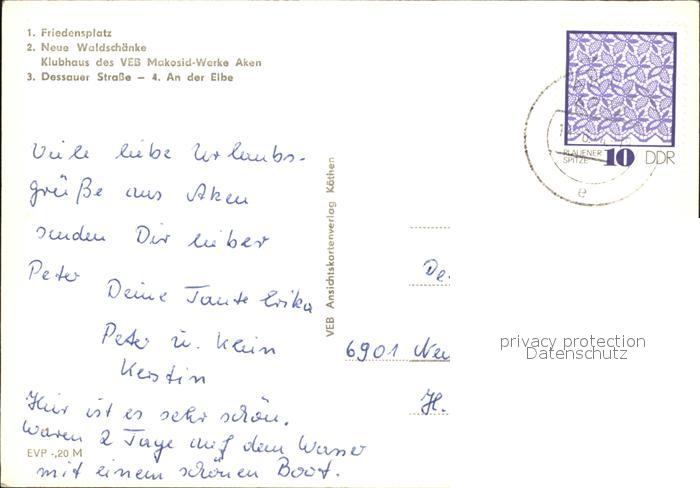 1. Friedensplatz
2. Neue Waldschänke
Klubhaus des VEB Makosid-Werke Aken
3. Dessauer Straße – 4. An der Elbe
PLAUENER
SPITZE 10 DDR
e
Viele liebe Urlaubs-
grüße aus Aken
senden Dir lieber
Peter
Deine Tante Erika
Peter u. Klein
Kerstin
Hier ist es sehr schön.
Waren 2 Tage auf dem Wasser
mit einem schönen Boot.
EVP -,20 M
VEB Ansichtskartenverlag Köthen
De.
6901 Neu
H.
privacy protection
Datenschutz